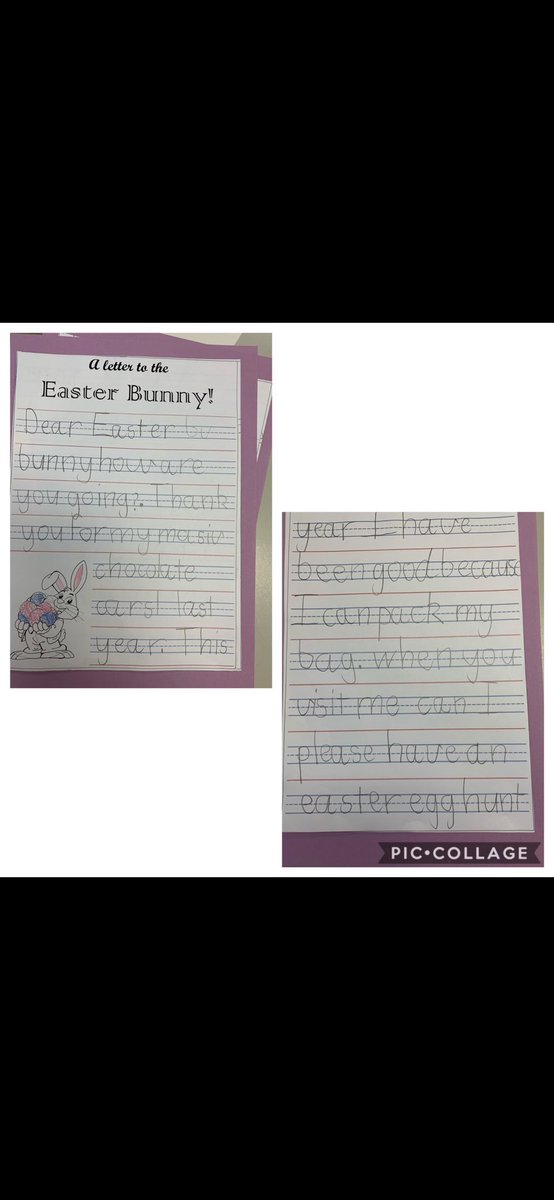 A letter to the
Easter Bunny!
Dear Easter bu
bunny how are
you going?. Thank
you for my masiv
chocolate
cars! last
year. This
year I have
been good because
I can pack my
bag. when you
visit me can I
please have an
easter egg hunt
PIC•COLLAGE